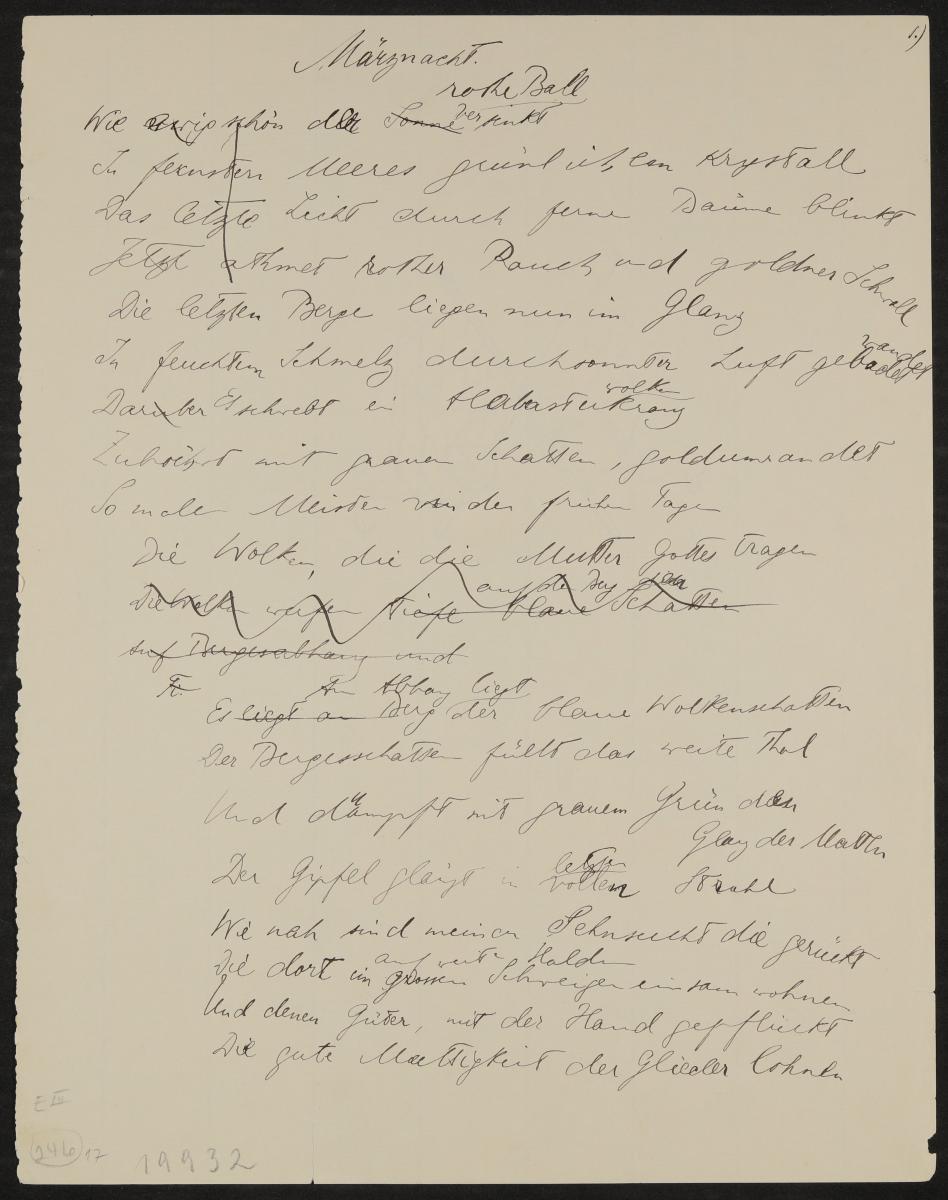 1.)
Märznacht.
rothe Ball
Wie ewig schön der Sonne versinkt
In fernsten Meeres grünlichem Krystall
Das letzte Licht durch ferne Bäume blinkt
Jetzt athmet rother Rauch und goldner Schwall
Die letzten Berge liegen nun im Glanz
wandet
In feuchtem Schmelz durchsonnter Luft gebadet
wolken
Darüber Es schwebt ein Alabasterkranz
Zuhöchst mit grauen Schatten, goldumrandet
So malen Meister von den frühen Tagen
Die Wolken, die die Mutter Gottes tragen
auf den Berg der
Die Wolken werfen tiefe blaue Schatten
Auf Bergesabhang und
Am Abhang liegt
Es liegt am Berg der blaue Wolkenschatten
Der Bergesschatten füllt das weite Thal
Und dämpft mit grauem Grün den
Glanz der Matten
letzten
Der Gipfel glänzt im vollen Strahl
Wie nah sind meiner Sehnsucht die gerückt
auf weiten Halden
Die dort im grossen Schweigen einsam wohnen
Und denen Güter, mit der Hand gepflückt
Die gute Mattigkeit der Glieder lohnen
E III
246 17
19932